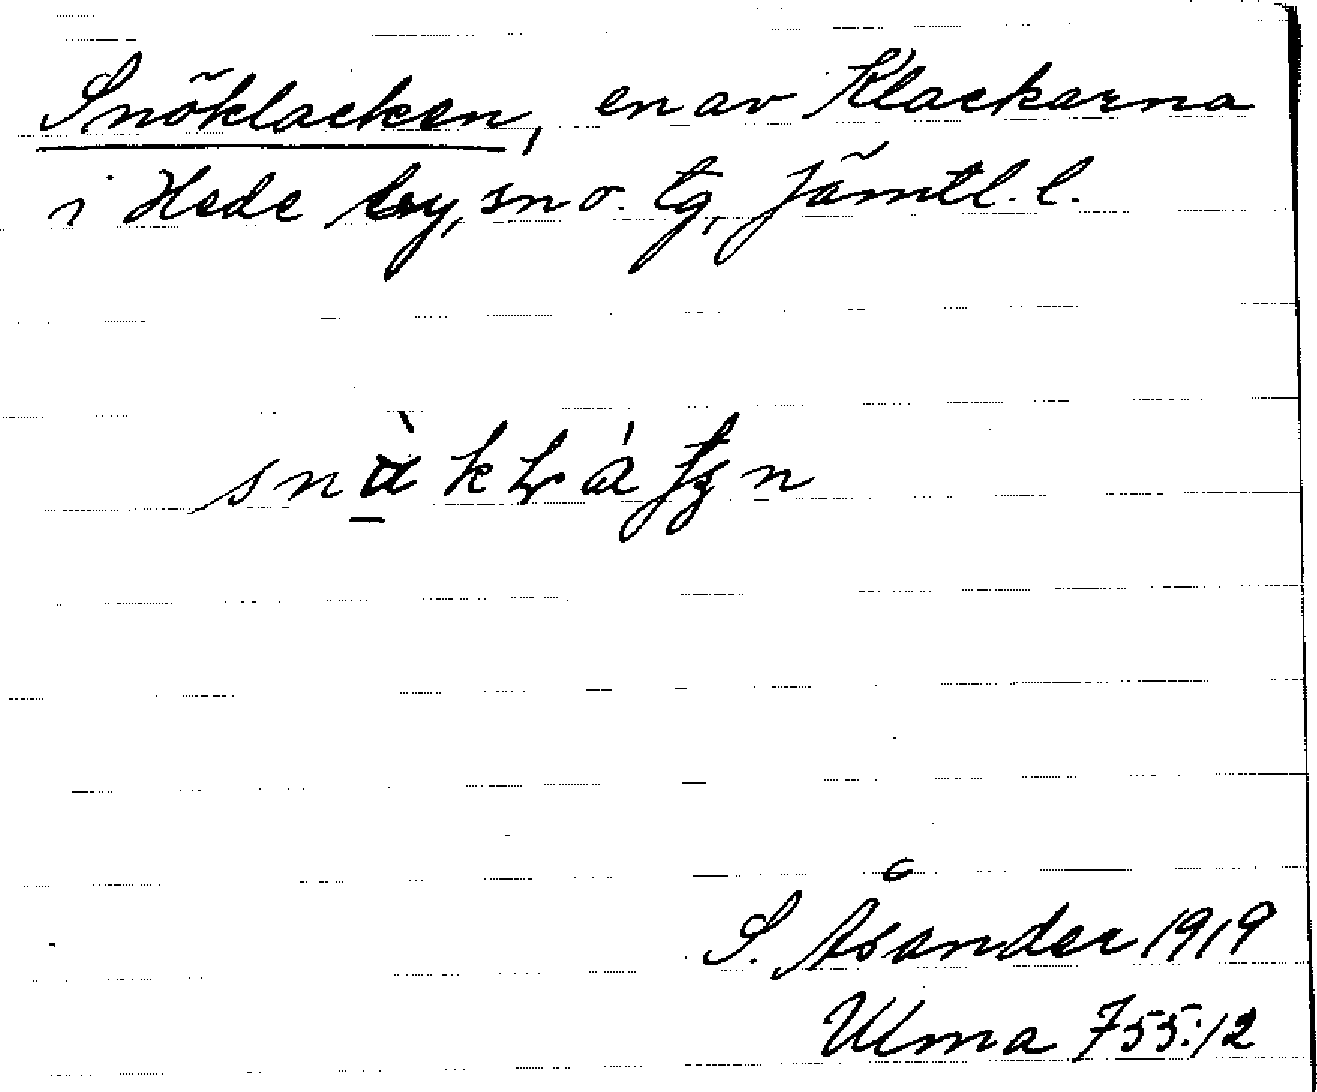 Snöklacken, en av Klackarna
i Hede by, sn o. tg, Jämtl. l.
S. Åsander 1919
Ulma 755:12